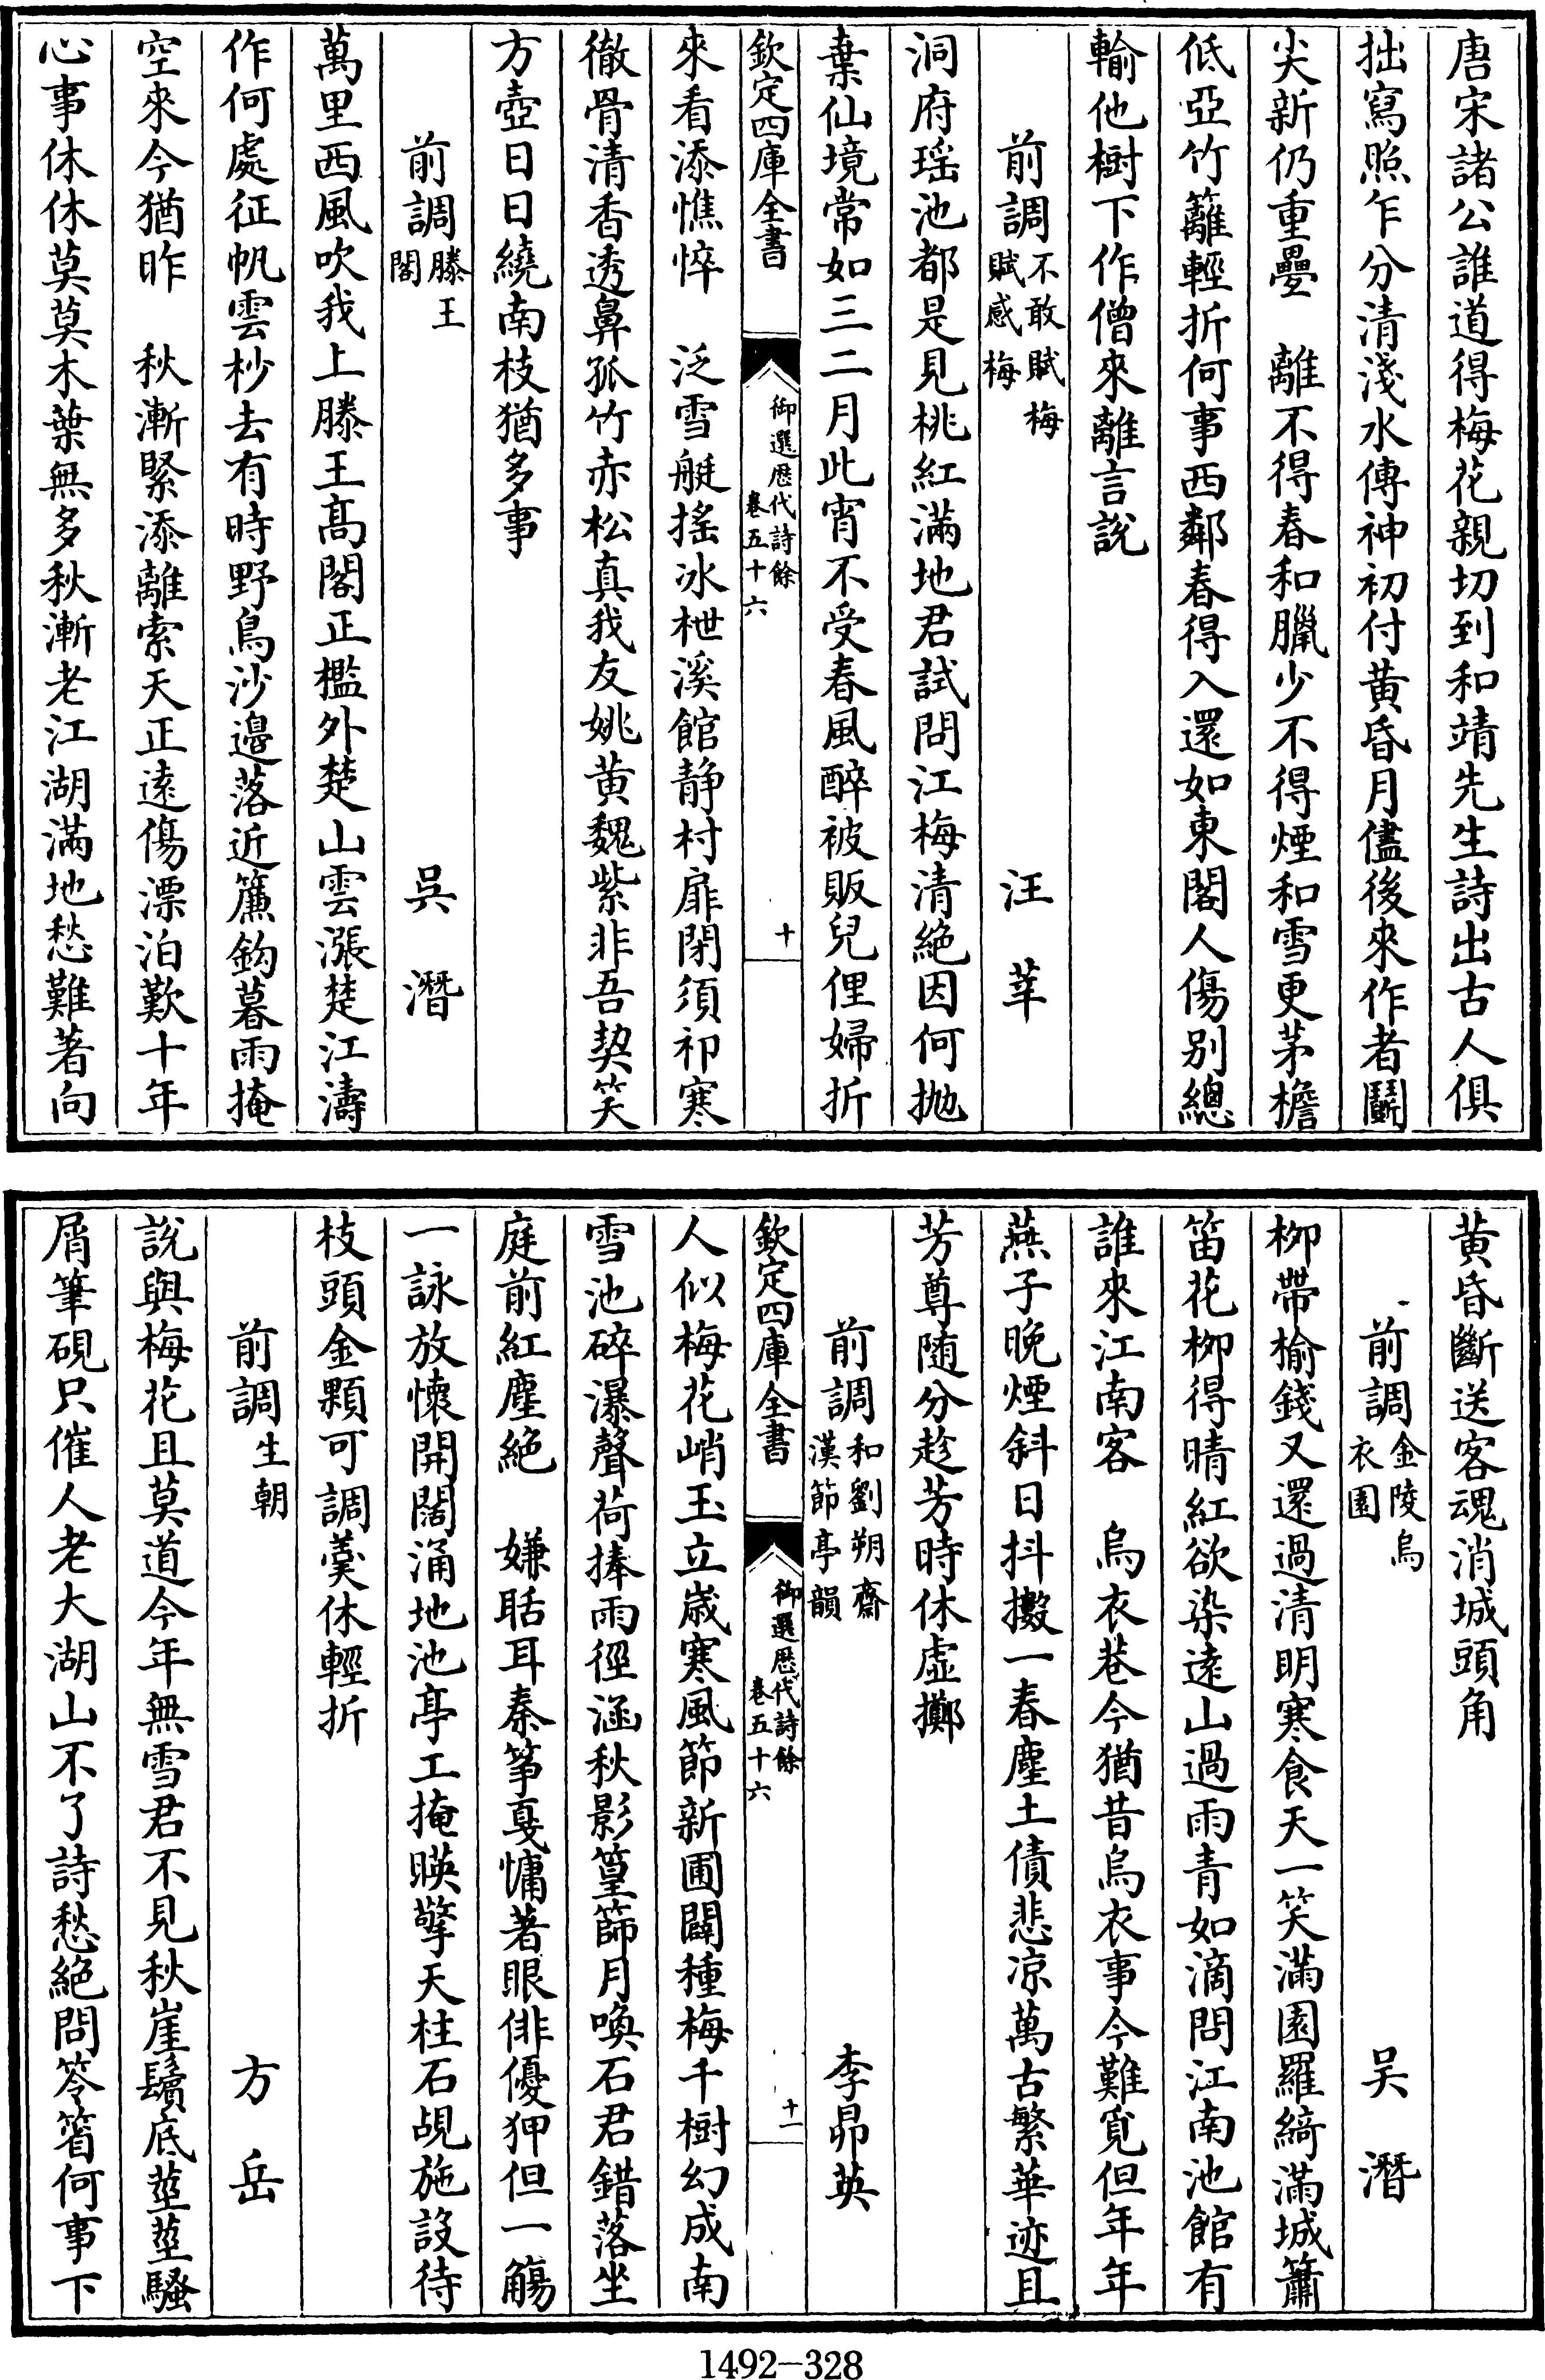 唐宋諸公誰道得梅花親切到和靖先生詩出古人俱
拙寫照乍分清淺水傳神初付黄昏月儘後來作者鬬
尖新仍重疊　離不得春和臘少不得煙和雪更茅檐
低亞竹籬輕折何事西鄰春得入還如東閣人傷别總
輸他樹下作僧來離言說
前調不敢賦梅賦感梅　汪莘
洞府瑶池都是見桃紅滿地君試問江梅清絶因何抛
棄仙境常如三二月此宵不受春風醉被販兒俚婦折
欽定四庫全書　御選歷代詩餘卷五十六　十
來看添憔悴　泛雪艇摇冰枻溪館静村扉閉須祁寒
徹骨清香透鼻孤竹赤松真我友姚黄魏紫非吾契笑
方壺日日繞南枝猶多事
前調滕王閣　吳潛
萬里西風吹我上滕王髙閣正檻外楚山雲漲楚江濤
作何處征帆雲杪去有時野鳥沙邉落近簾鈎暮雨掩
空來今猶昨　秋漸緊添離索天正逺傷漂泊歎十年
心事休休莫莫木葉無多秋漸老江湖滿地愁難著向
黄昏斷送客魂消城頭角
前調金陵烏衣園　吴潛
柳帶榆錢又還過清明寒食天一笑滿園羅綺滿城簫
笛花栁得晴紅欲染逺山過雨青如滴問江南池館有
誰來江南客　烏衣巷今猶昔烏衣事今難覓但年年
燕子晚煙斜日抖擻一春塵土債悲凉萬古繁華迹且
芳尊随分趁芳時休虚擲
前調和劉朔齋漢節亭韻　李昴英
欽定四庫全書　御選歷代詩餘卷五十六　十一
人似梅花峭玉立嵗寒風節新圃闢種梅千樹幻成南
雪池碎瀑聲荷捧雨徑涵秋影篁篩月喚石君錯落坐
庭前紅塵絶　嫌聒耳秦筝戞慵著眼俳優狎但一觴
一詠放懷開闊涌地池亭工掩暎擎天柱石覘施設待
枝頭金顆可調羹休輕折
前調生朝　方岳
說與梅花且莫道今年無雪君不見秋崖鬚底莖莖騷
屑筆硯只催人老大湖山不了詩愁絶問笭箵何事下
1492—328